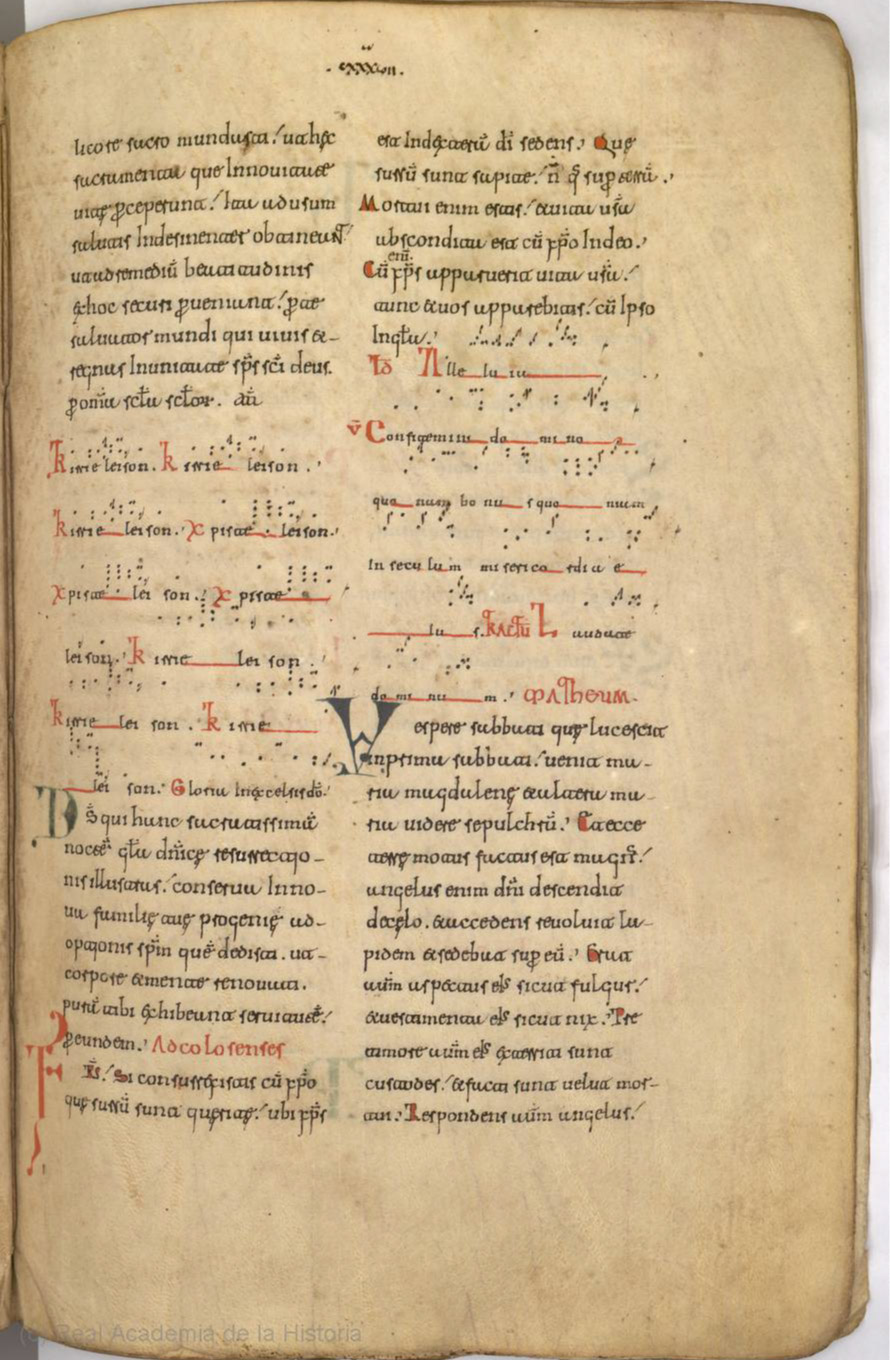 cxxxvii.
licore sacro mundusat. ut hęc
sacramenta que Innouitatę
uitę p̱ceperunt. Ita ad usum
salutis Indesinenter obtineant
ut ad remediū beatitudinis
ex hoc securi p̱ueniunt. p̱ te
saluator mundi qui uiuis &
regnas Inunitate sp̄s sc̄i deus.
p̱ om̄ia sc̄la sc̄lor. am̄
Kirrie leison. Kirrie leison.
Kirrie leison. Xpistae leison.
Xpistae lei son. Xpistae
leison. Kirrie lei son.
Kirrie lei son. Kirrie
lei son. Gloria Inexcelsis dō.
Ds̄ qui hanc sacratissimā
noctē gl̄a dn̄icę resurrectio
nis illustras. conserua Inno
ua familię tuę progenię ad
optionis sp̄m quē dedisti. ut
corpore & mente renouati.
purā tibi exhibeant seruitutē.
p̱ eundem. Ad colosenses
Fr̄s. Si consurrexistis cū xp̄o
que sursū sunt querite. ubi xp̄s
est Indextera d̄i sedens. Que
sursū sunt sapite. n̄ q̄ sup̱ terrā.
Mortui enim estis. & uita ur̄a
abscondita est cū xp̄o Indeo.
Cū eni xp̄s apparuerit uita ur̄a.
tunc & uos apparebitis. cū Ipso
Ingl̄a.
Alle lu ia
v̄ Confitemini do mi no
quo niam bo nu s quo niam
In secu lu m miserico rdia e
iu s. Tractū Laudate
do mi nu m. Matheum.
Vespere sabbati quę lucescit
Inprima sabbati. uenit ma
ria magdalenę & altera ma
ria uidere sepulchrū. Et ecce
terrę motus factus est magn̄.
angelus enim dn̄i descendit
decęlo. & accedens reuoluit la
pidem & sedebat sup̱ eū. Erat
aūm aspectus eī sicut fulgur.
& uestimenta eī sicut nix. Pre
timore aūm eī exterriti sunt
custodes. & facti sunt uelut mor
tui. Respondens aūm angelus.
(c) Real Academia de la Historia